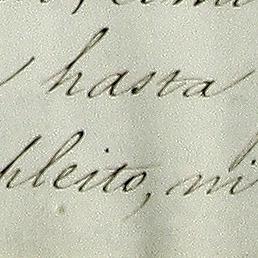 hasta
pleito, ni